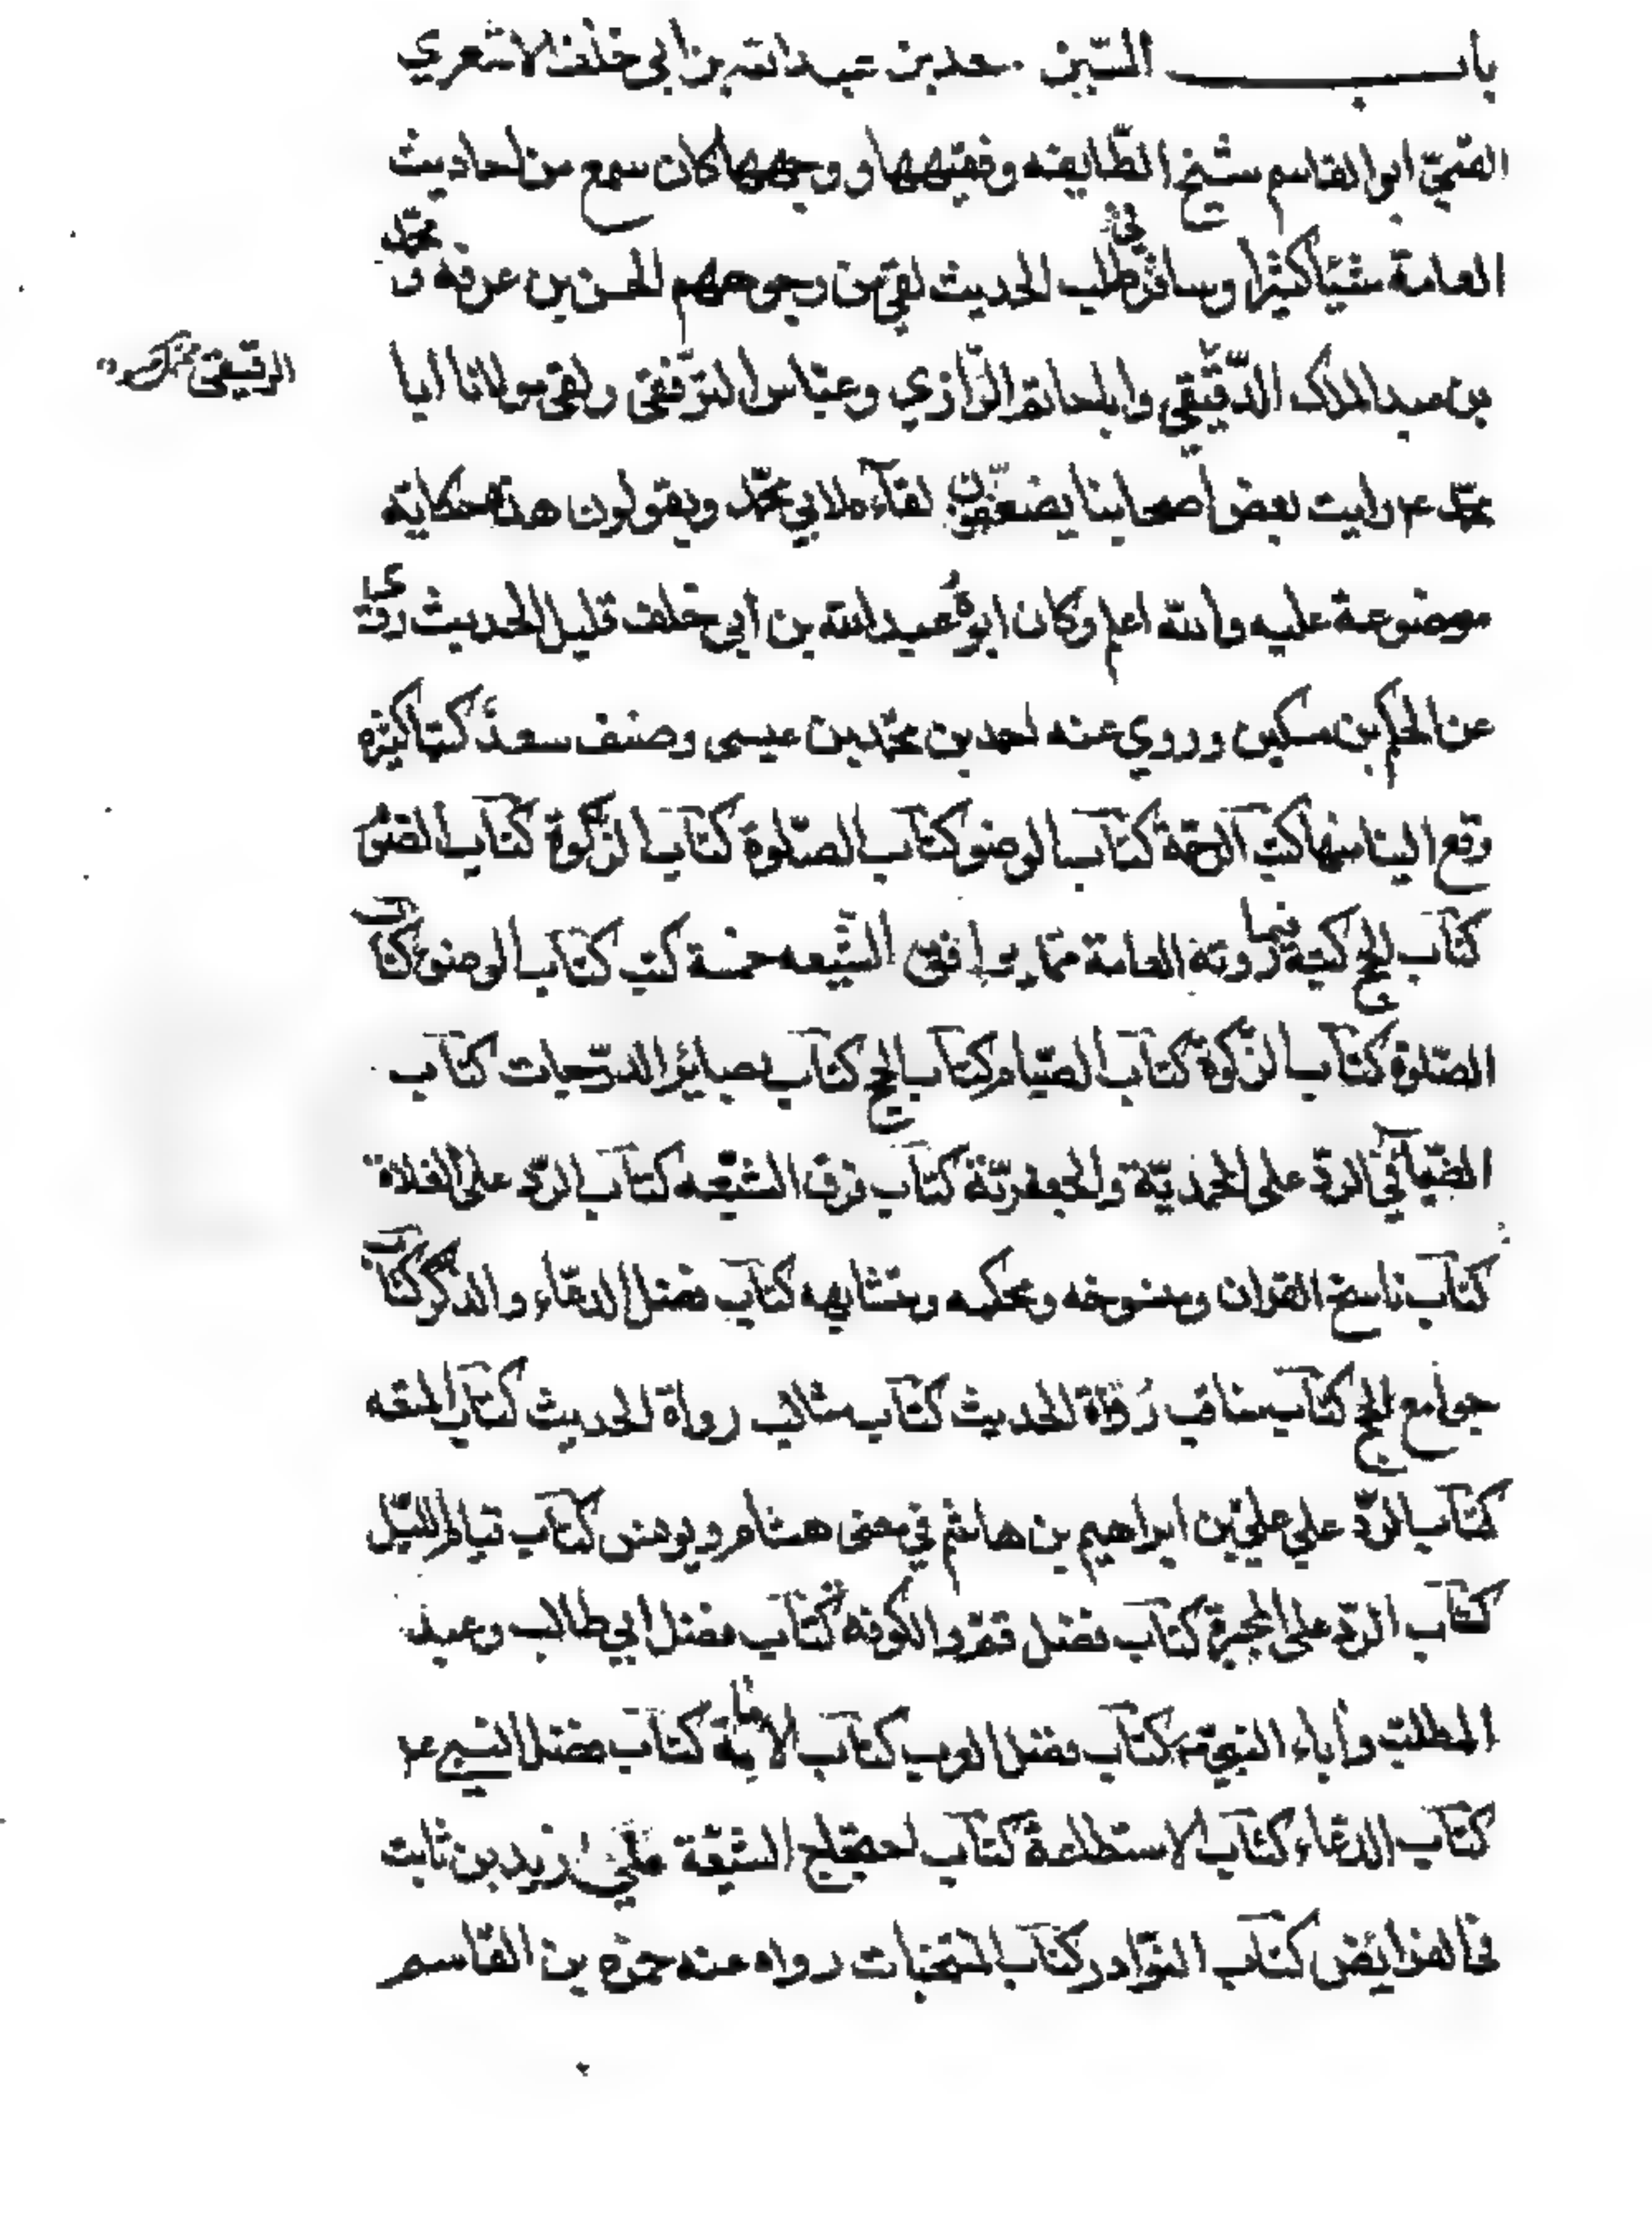 باب السّين سعد بن عبد الله بن ابي خلف الاشعري
القمّي ابو القاسم شيخ الطّايفه وفقيهها ووجهها كان سمع من احاديث
العامة شيئا كثيرا وسافر في طلب الحديث لقي من وجوههم الحسن بن عرفه و محمّد
بن عبد الملك الدّقيقي وابا حاتم الرّازي وعبّاس الترقفي ولقي مولانا ابا
الرقيقي
محمّد ع رايت بعض اصحابنا يضعّفون لقآءه لابي محمّد ويقولون هذه حكاية
موضوعة عليه والله اعلم وكان ابوه عبد الله بن ابي خلف قليل الحديث روى
عن الحكم بن مسكين وروي عنه احمد بن محمّد بن عيسى وصنف سعد كتبا كثيرة
وقع الينا منها كتب الرحمة كتاب الوضو كتاب الصّلوة كتاب الزّكوة كتاب الصّوم
كتاب الحج كتبه فيما روته العامة ممّا يوافق الشّيعه خمسة كتب كتاب الوضوء كتاب
الصّلوة كتاب الزّكوة كتاب الصّيام كتاب الحج كتاب بصائر الدّرجات كتاب
الضّيآء في الردّ على المحمّديّة والجعفريّة كتاب فرق الشيعه كتاب الرّد على الغلاة
كتاب ناسخ القران ومنسوخه ومحكمه ومتشابهه كتاب فضل الدعّاء والذكر كتاب
جوامع الحج كتاب مناقب رواة الحديث كتاب مثالب رواة الحديث كتاب المتعه
كتاب الردّ علي علي بن ابراهيم بن هاشم في معنى هشام ويونس كتاب قيام اللّيل
كتاب الردّ على المجبرة كتاب فضل قم والكوفه كتاب فضل ابي طالب وعبد
المطلب وأباء النبي ص كتاب فضل العرب كتاب الامامة كتاب فضل النبي ع
كتاب الدعّاء كتاب الاستطاعة كتاب احتجاج الشيّعة على زيد بن ثابت
في الفرائض كتاب النّوادر كتاب المنتخبات رواه عنه حمزه بن القاسم